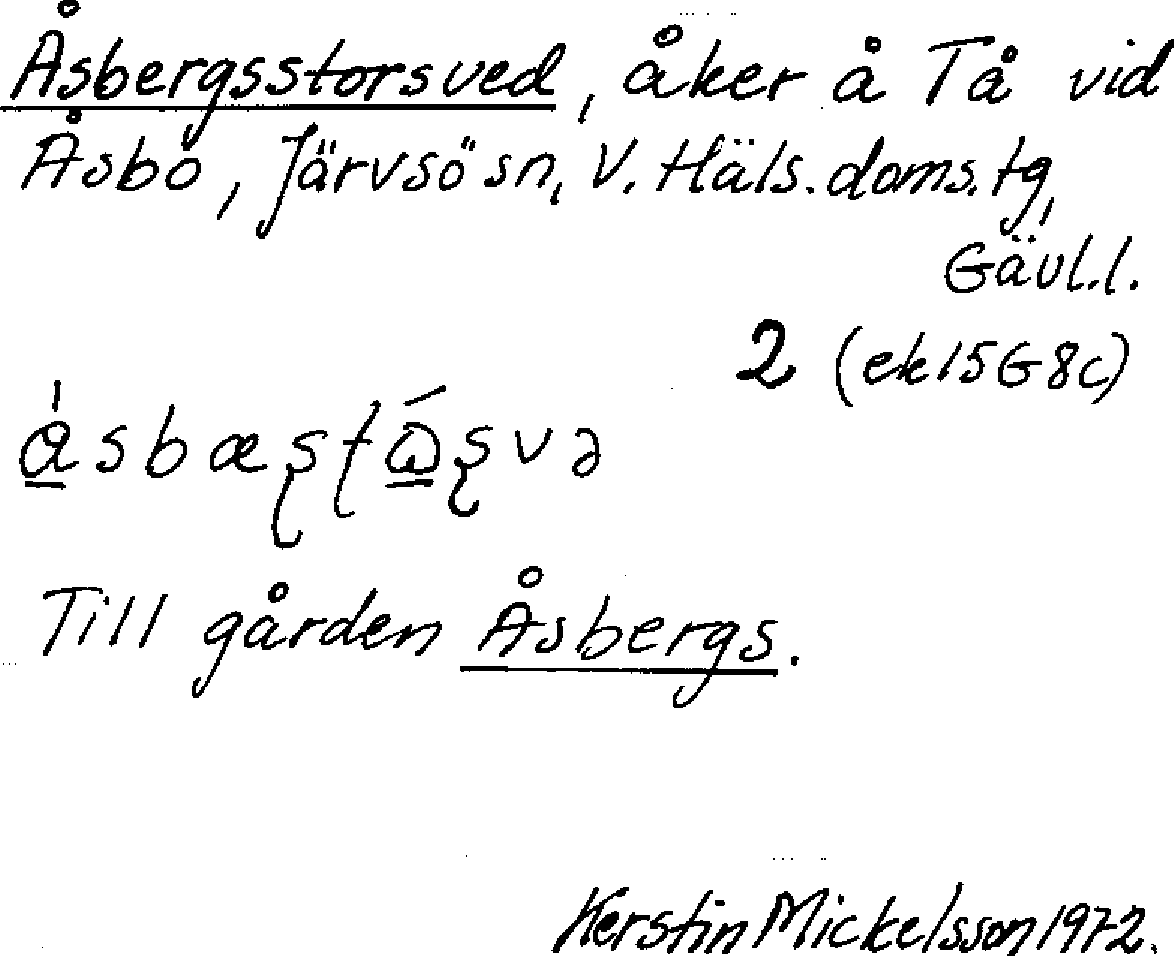 Åsbergsstorsved, åker å Tå vid
Åsbo, Järvsö sn, V. Häls. doms. tg,
Gävl.l.
2 (ek 15G8c)
Till gården Åsbergs.
Kerstin Mickelsson 1972.